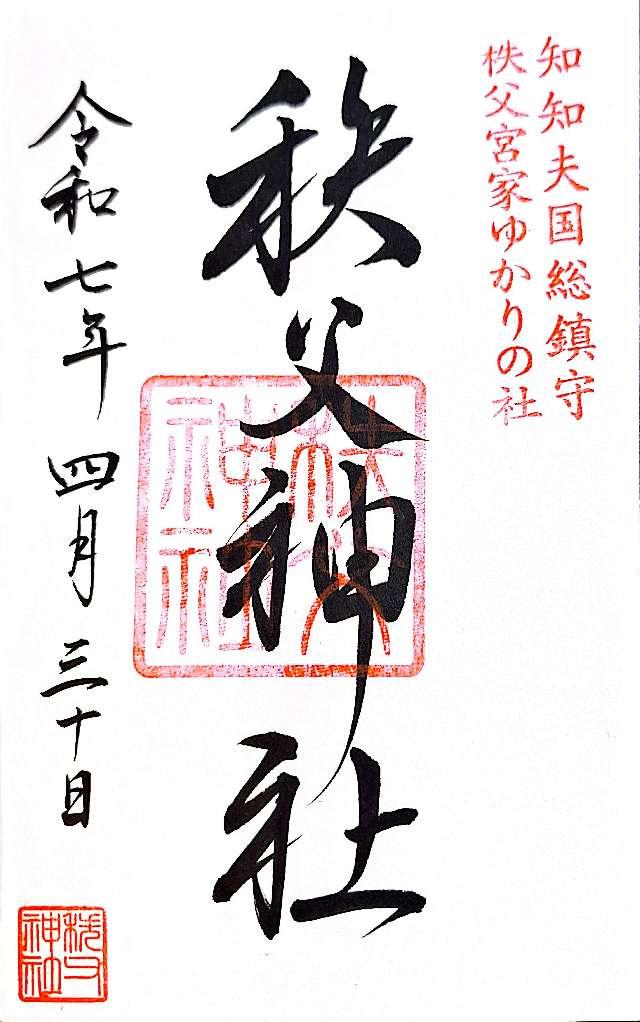 知知夫国総鎮守
秩父宮家ゆかりの社
秩父神社
秩父神社
令和七年四月三十日
秩父神社